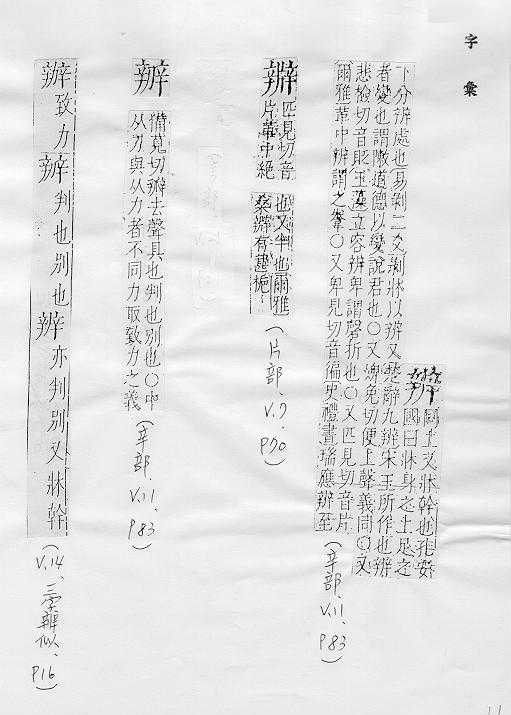 字彙
辨 同上又牀幹也孔安
國曰牀身之上足之
下分辨處也易剝二爻剝牀以辨又楚辭九辨宋玉所作也辨
者變也謂敶道德以變說君也〇又婢免切便上聲義同〇又
悲檢切音貶玉藻立容辨卑謂磬折也〇又匹見切音片
爾雅革中辨謂之韏〇又卑見切音徧史禮書瑞應辨至
(辛部、V.11、P83)
辦 匹見切音
片革中絕
也又半也爾雅
桑辦有葚梔
(片部、V.7、P70)
辦 備莧切瓣去聲具也判也別也〇中
从刀與从力者不同力取致力之義
(辛部、V.11、P83)
辦致力辨判也別也辧亦判別又牀幹
(V.14、二字辨似、P16)
11